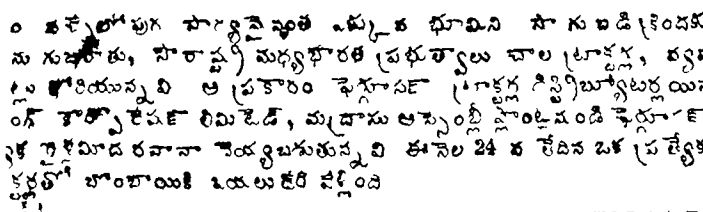 ౦ వత్సరలోపుగ సాధ్యమైనంత ఎక్కువ భూమిని సాగుబడి క్రిందకు
ను గుజరాతు, సౌరాష్ట్ర మధ్యభారత ప్రభుత్వాలు చాల ట్రాక్టర్ల,
ట్లు కోరియున్నవి ఆ ప్రకారం ఫెర్గూసన్ ట్రాక్టర్ల డిస్ట్రిబ్యూటర్లయిన
ంగ్ కార్పొరేషన్ లిమిటెడ్, మద్రాసు అస్సెంబ్లీ ప్లాంట్లనుండి ఫెర్గూసన్
్యేక రైళ్లమీద రవానా చెయ్యబడుతున్నవి ఈనెల 24 వ తేదిన ఒక ప్రత్యేక
క్టర్లతో బొంబాయికి బయలుదేరి వెళ్లింది